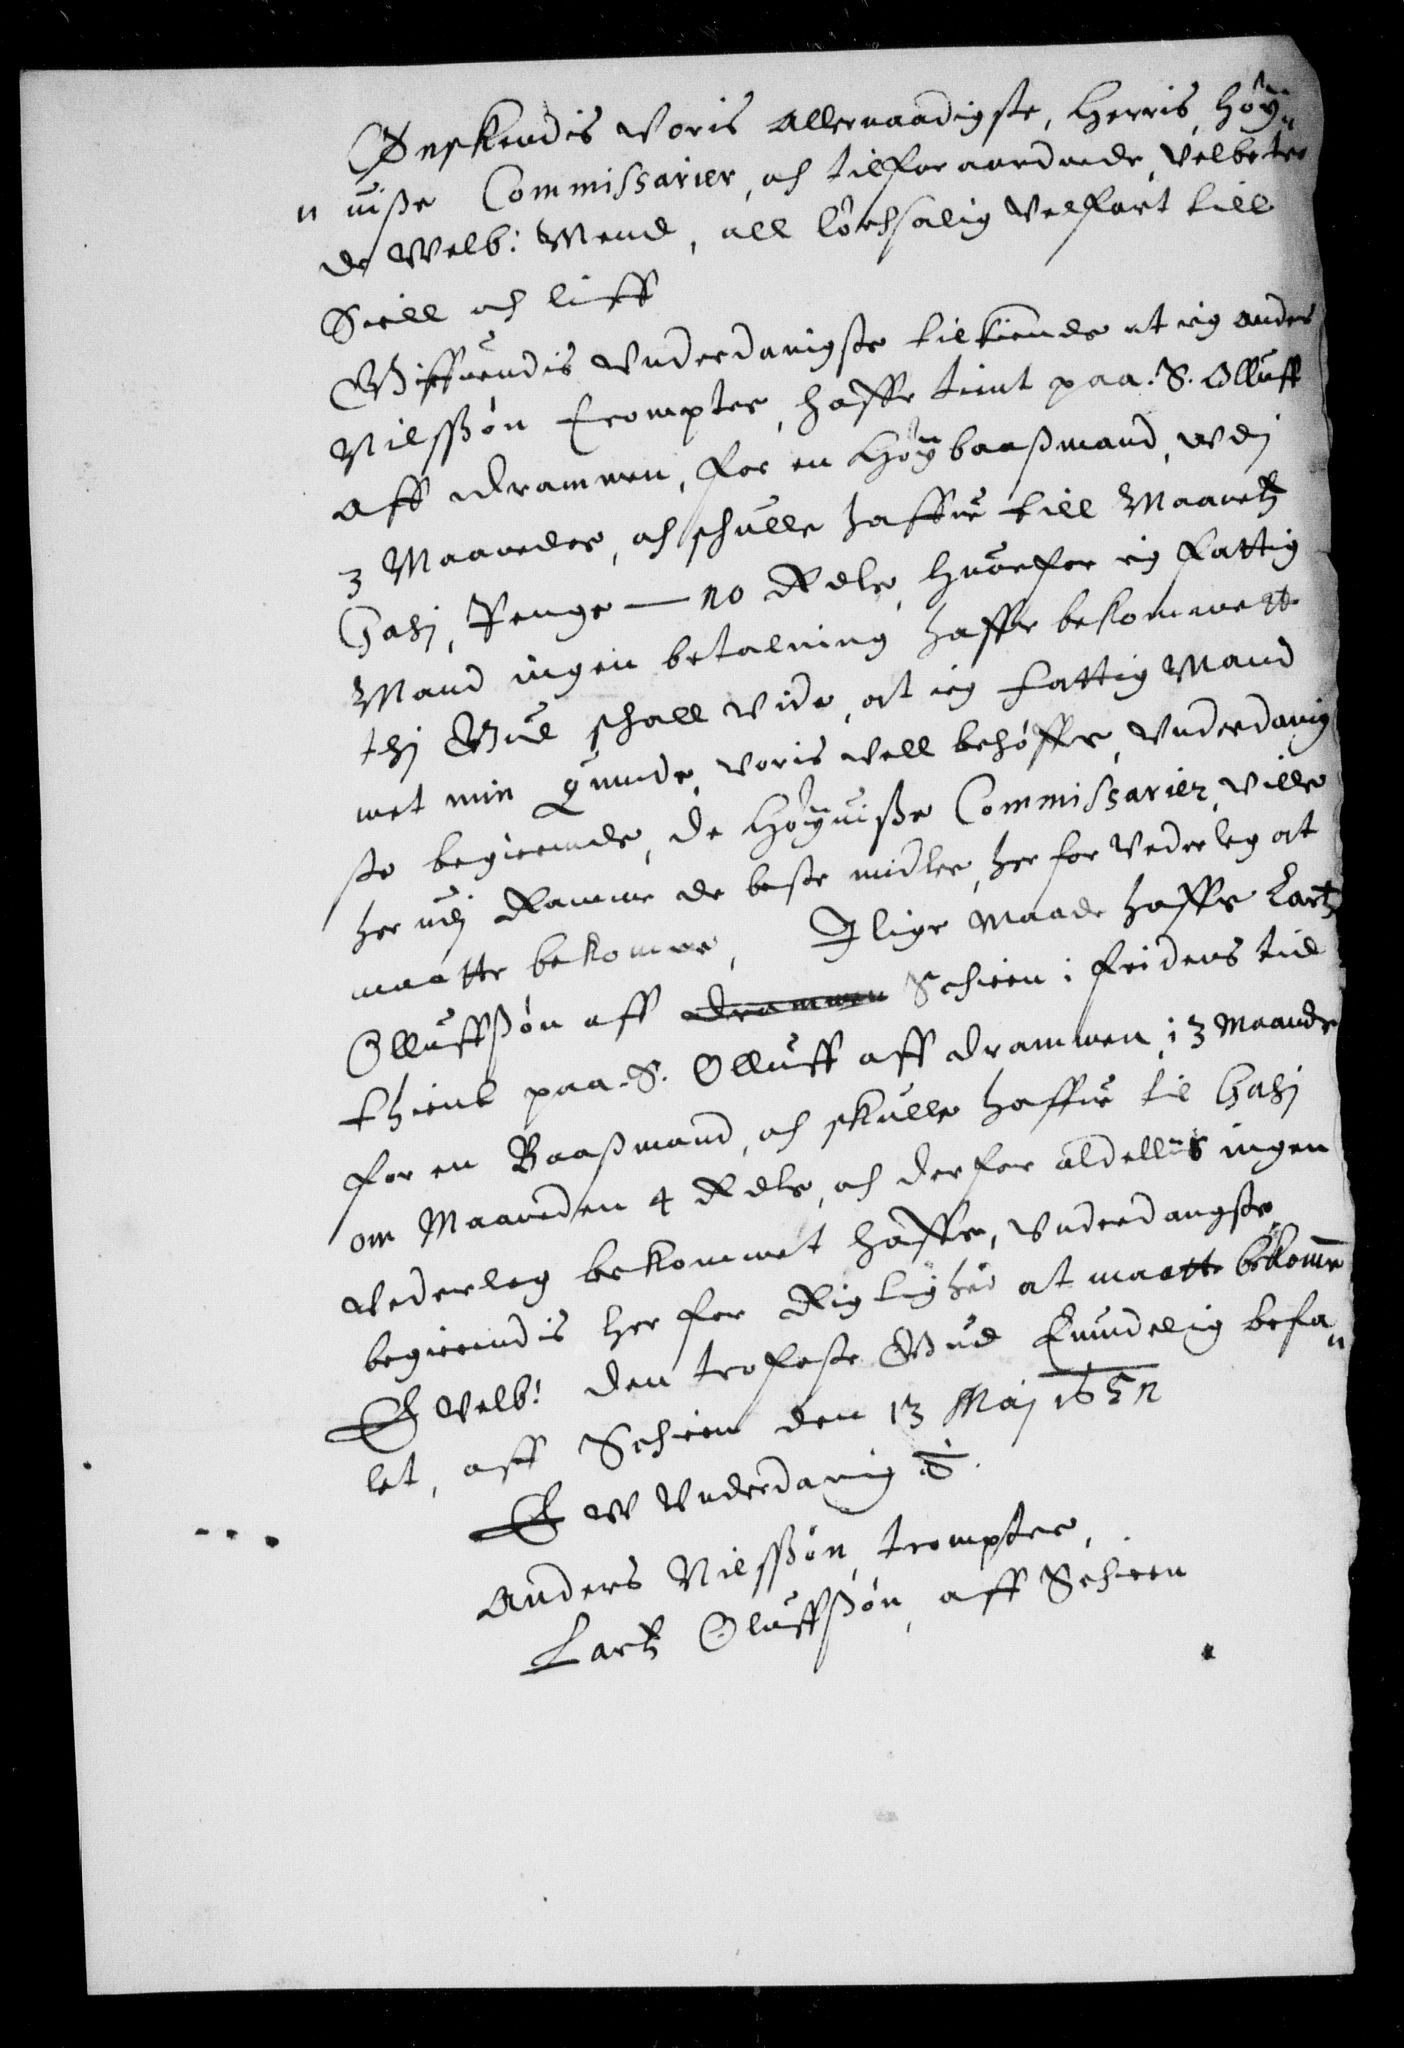 Ønskendis Voris Allernaadigste, Herris, Høÿ„
„uiße Commissarier, och tilforaardnede, Velbetro
de Welb: Mend, all löchsalig Velfart till
Siell och liiff
Giffuendis Vnderdanigste tilkiende at ieg Anders
Nielssøn Trompter, haffr tient paa S. Olluff
aff Drammen, for en Høÿbaaßmand, wdj
3 Maaneder, och schulle haffue till Maanetz
Gasj, Penge — 10 Rdlr, huorfor ieg fattig
Mand ingen betalning haffr bekommett
thj Gud schall vide, at ieg fattig Mand
met min quinde, voris vell behøffr, Vnderdanig
ste begierende, de Høÿuiße Commissarier, ville
her udj Ramme de beste midler, her for Vederleg at
maatte bekomme, J lige Maade haffr Lartz
Olluffßøn aff Drammen Schien i feidens tiid
thient paa S. Olluff aff Drammen i 3 Maander
for en Baaßmand, och skulle haffue til Gasj
om Maaneden 4 Rdlr, och derfor aldelliis ingen
Vederleg bekommet haffr, Vnderdangste
begierendis her for Rigtighed at maatte bekomme
E Velb: den trofaste Gud Euindelig befa„
let, aff Schien den 13 Maj 1652
E W Vnderdanig
Anders Nielssøn, trompter,
Lartz Oluffßøn, aff Schien